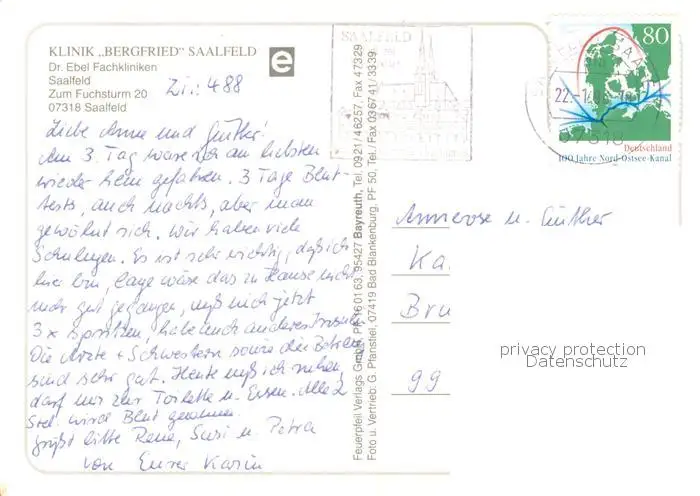 KLINIK „BERGFRIED" SAALFELD
Dr. Ebel Fachkliniken
Saalfeld
Zum Fuchsturm 20
07318 Saalfeld
e
Zi.: 488
Liebe Anne und Günther!
Am 3. Tag wäre ich am liebsten
wieder heim gefahren. 3 Tage Blut-
tests, auch nachts, aber man
gewöhnt sich. Wir haben viele
Schulungen. Es ist sehr wichtig, daß ich
hier bin, lange wäre das zu Hause nicht
mehr gut gegangen, muß mich jetzt
3 x spritzen, habe auch anderes Insulin.
Die Ärzte + Schwestern sowie die Betreu
sind sehr gut. Heute muß ich ruhen,
darf nur zur Toilette u. Essen. Alle 2
Std. wird Blut genommen.
Grüßt bitte Rene, Susi u. Petra
von Eurer Karin
Feuerpfeil Verlags GmbH, PF 16 01 63, 95427 Bayreuth, Tel. 0921/46257, Fax 47329
Foto u. Vertrieb: G. Pfanstiel, 07419 Bad Blankenburg, PF 50, Tel./Fax 036741/3339
SAALFELD
80
22.-1
07318
Deutschland
100 Jahre Nord-Ostsee-Kanal
Annerose u. Günther
Ka
Bru
99
privacy protection
Datenschutz